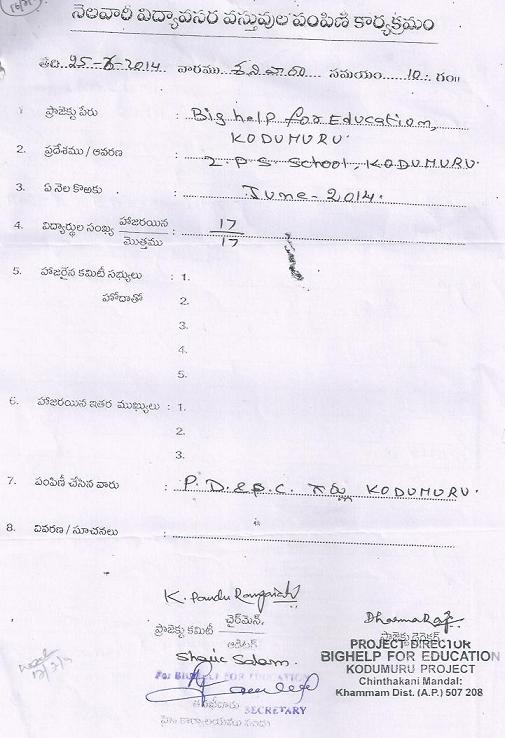 నెలవారీ విద్యావసర వస్తువుల పంపిణి కార్యక్రమం
తేది 25-6-2014 వారము శనివారం సమయం 10 గం॥
1 ప్రాజెక్టు పేరు : Big help for Education, KODUMURU.
2. ప్రదేశము / ఆవరణ : 2 P S School, KODUMURU.
3. ఏ నెల కొఱకు : June - 2014.
4. విద్యార్థుల సంఖ్య హాజరయిన / మొత్తము : 17 / 17
5. హాజరైన కమిటీ సభ్యులు : 1.
హోదాతో 2.
3.
4.
5.
6. హాజరయిన ఇతర ముఖ్యులు : 1.
2.
3.
7. పంపిణీ చేసిన వారు : P. D. & P. C. గార్లు KODUMURU.
8. వివరణ / సూచనలు :
K. Pandu Rangaiah
ప్రాజెక్టు కమిటీ ఛైర్మెన్,
ఆడిటర్
Dharma Raj
ప్రాజెక్టు డైరెక్టర్
PROJECT DIRECTOR
BIGHELP FOR EDUCATION
KODUMURU PROJECT
Chinthakani Mandal:
Khammam Dist. (A.P.) 507 208
Shaik Salam.
For BIGHELP FOR EDUCATION
SECRETARY